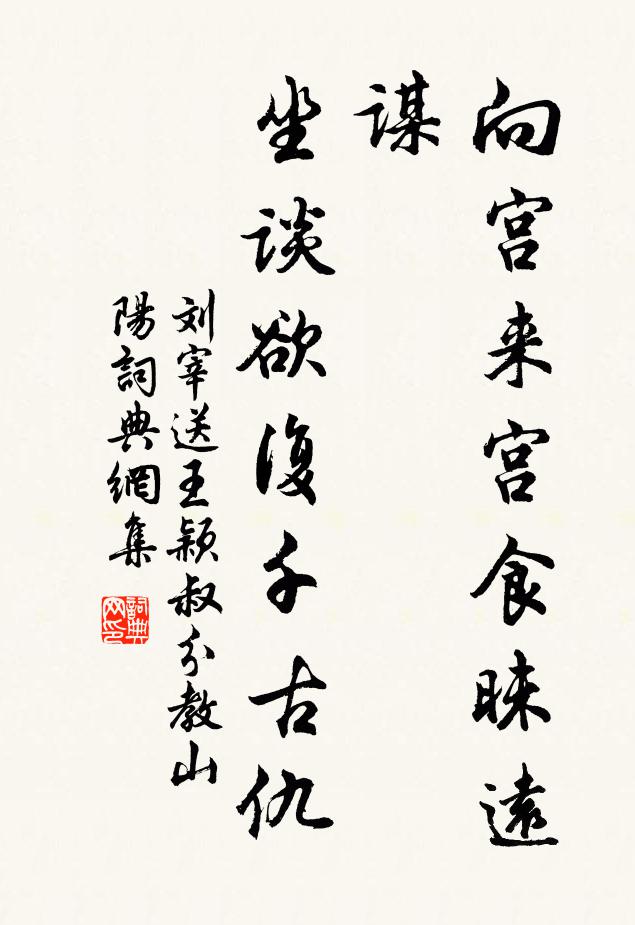 向宫来宫食昧遠
謀
坐談欲復千古仇
刘宰送王颖叔分教山
陽詞典網集
詞典
网印